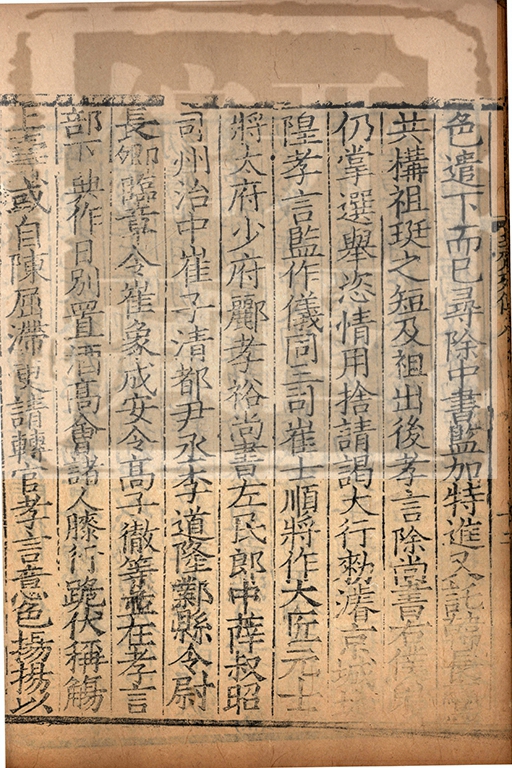 色遣下而已尋除中書監加特進又託韓
共構祖珽之短及祖出後孝言除尚書右僕射
仍掌選舉恣情用捨請謁大行勑濬京城
隍孝言監作儀同三司崔士順將作大匠元士
將太府少府酈孝裕尚書左民郎中薛叔昭
司州治中崔子清都尹丞李道隆鄴縣令尉
長卿臨章令崔象成安令高子徹等並在孝言
部下典作日別置酒高會諸人膝行跪伏稱觴
上壽或自陳屈滯更請轉官孝言意色揚揚以